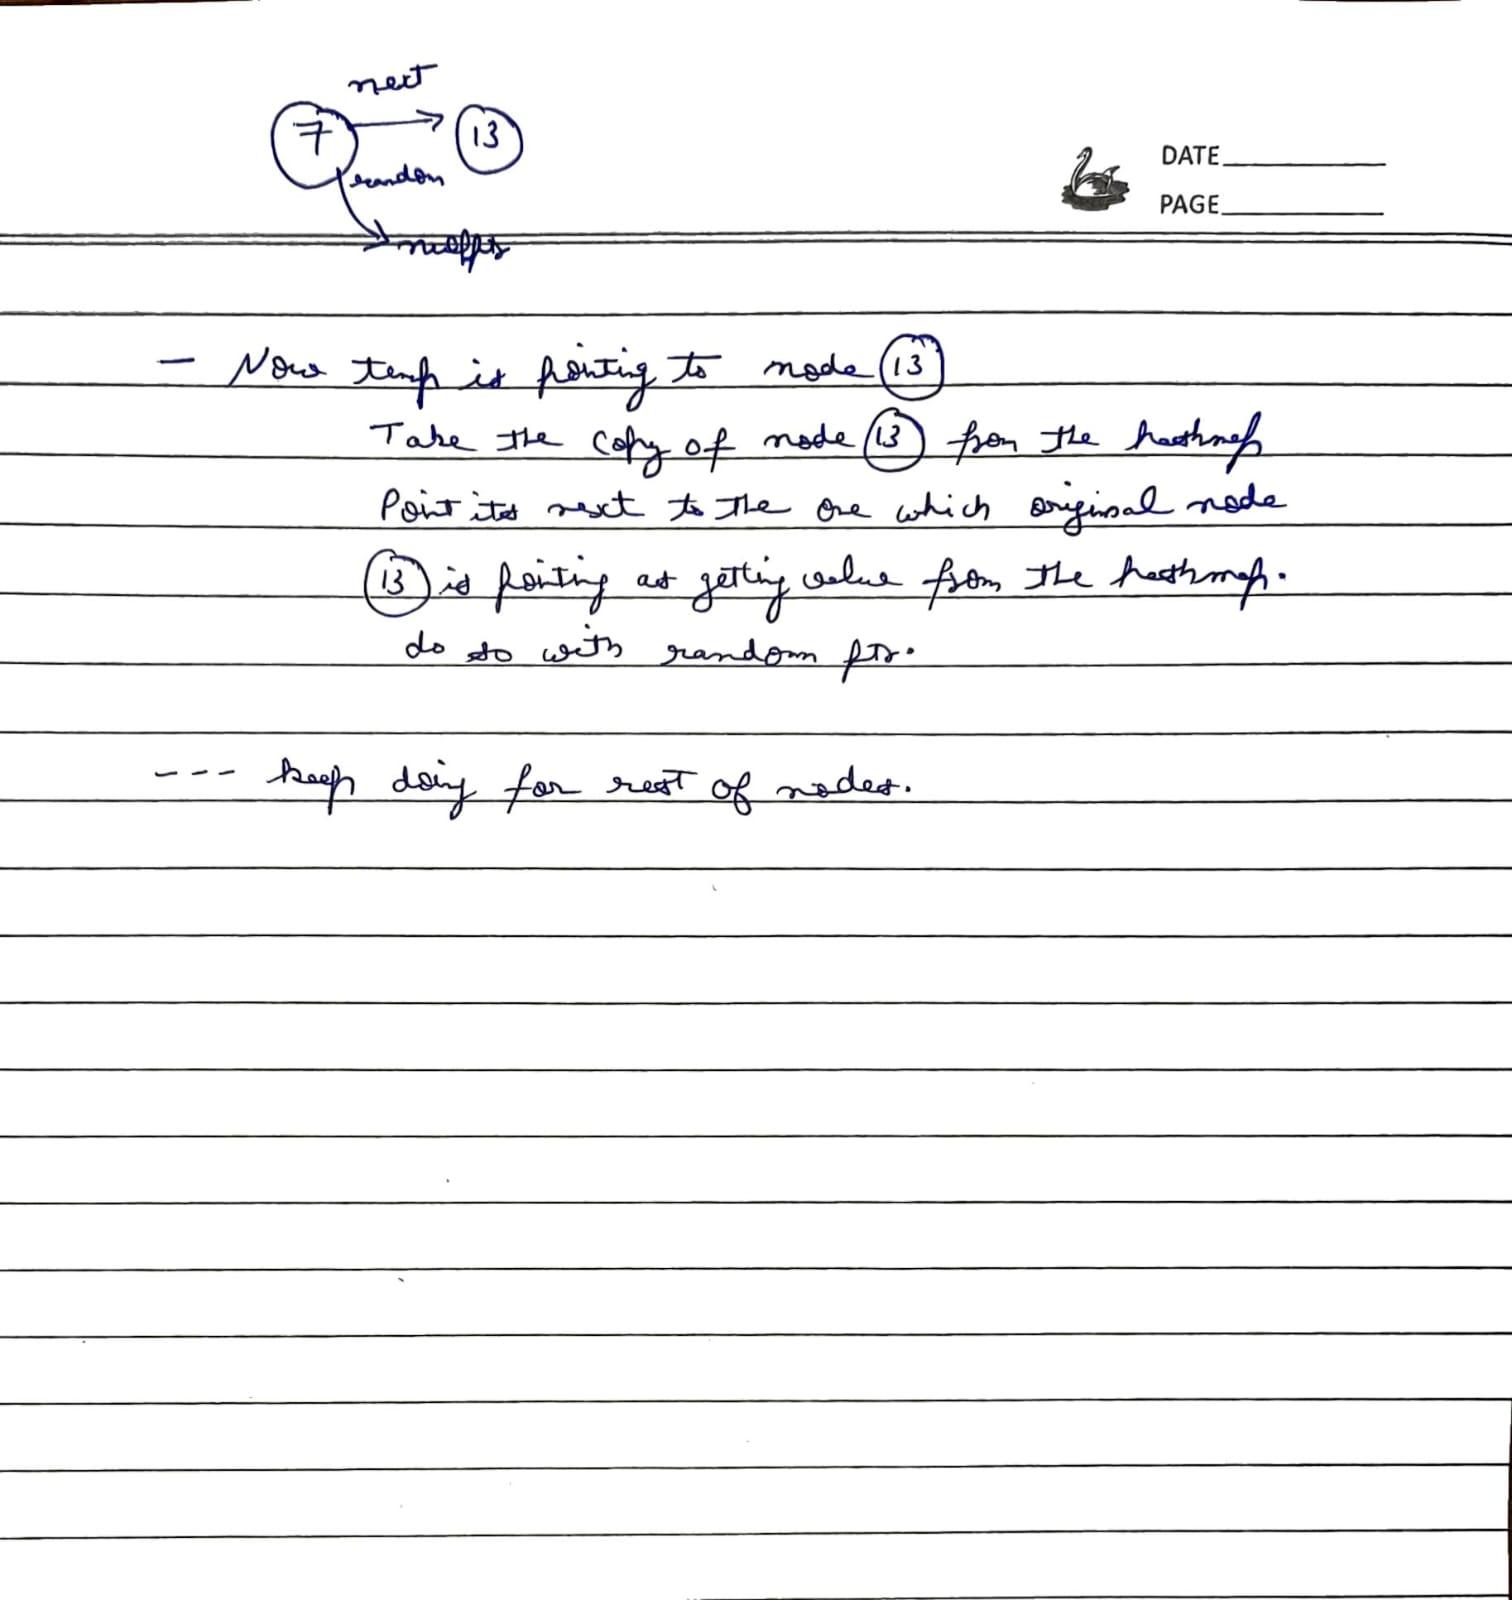 next
7 13
random
nullptr
DATE
PAGE
- Now temp is pointing to node 13
Take the copy of node 13 from the hashmap
Point its next to the one which original node
13 is pointing as getting value from the hashmap.
do so with random ptr.
--- keep doing for rest of nodes.